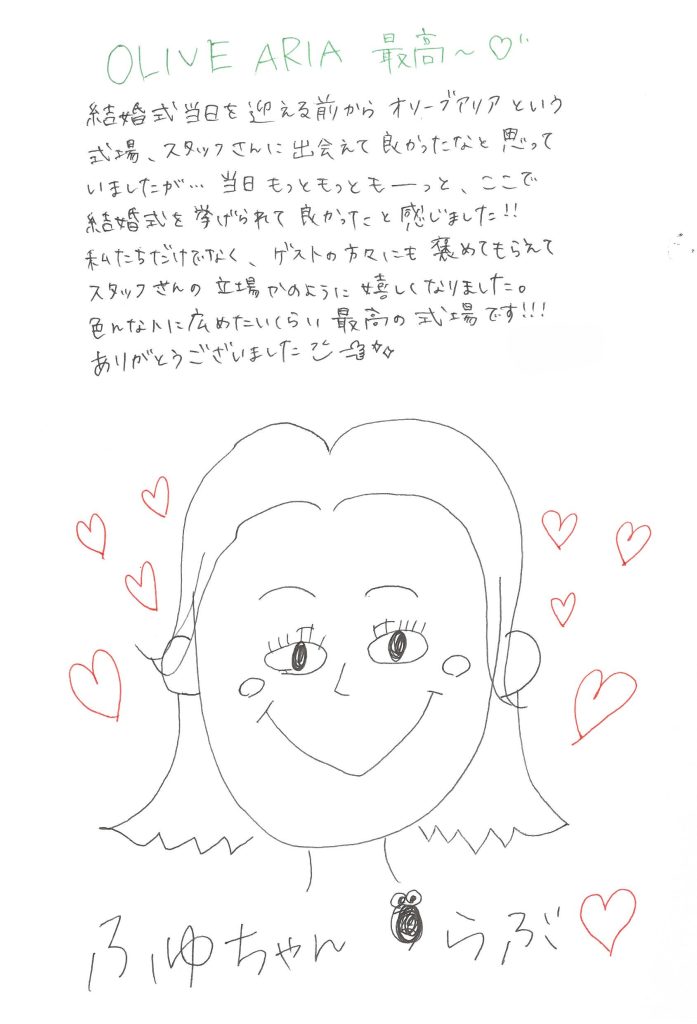 OLIVE ARIA 最高〜♡
結婚式当日を迎える前から オリーブアリアという
式場、スタッフさんに出会えて良かったなと思って
いましたが… 当日 もっともっともーーっと、ここで
結婚式を挙げられて良かったと感じました!!
私たちだけでなく、ゲストの方々にも褒めてもらえて
スタッフさんの立場かのように嬉しくなりました。
色んな人に広めたいくらい最高の式場です!!!
ありがとうございました
ふゆちゃん らぶ♡